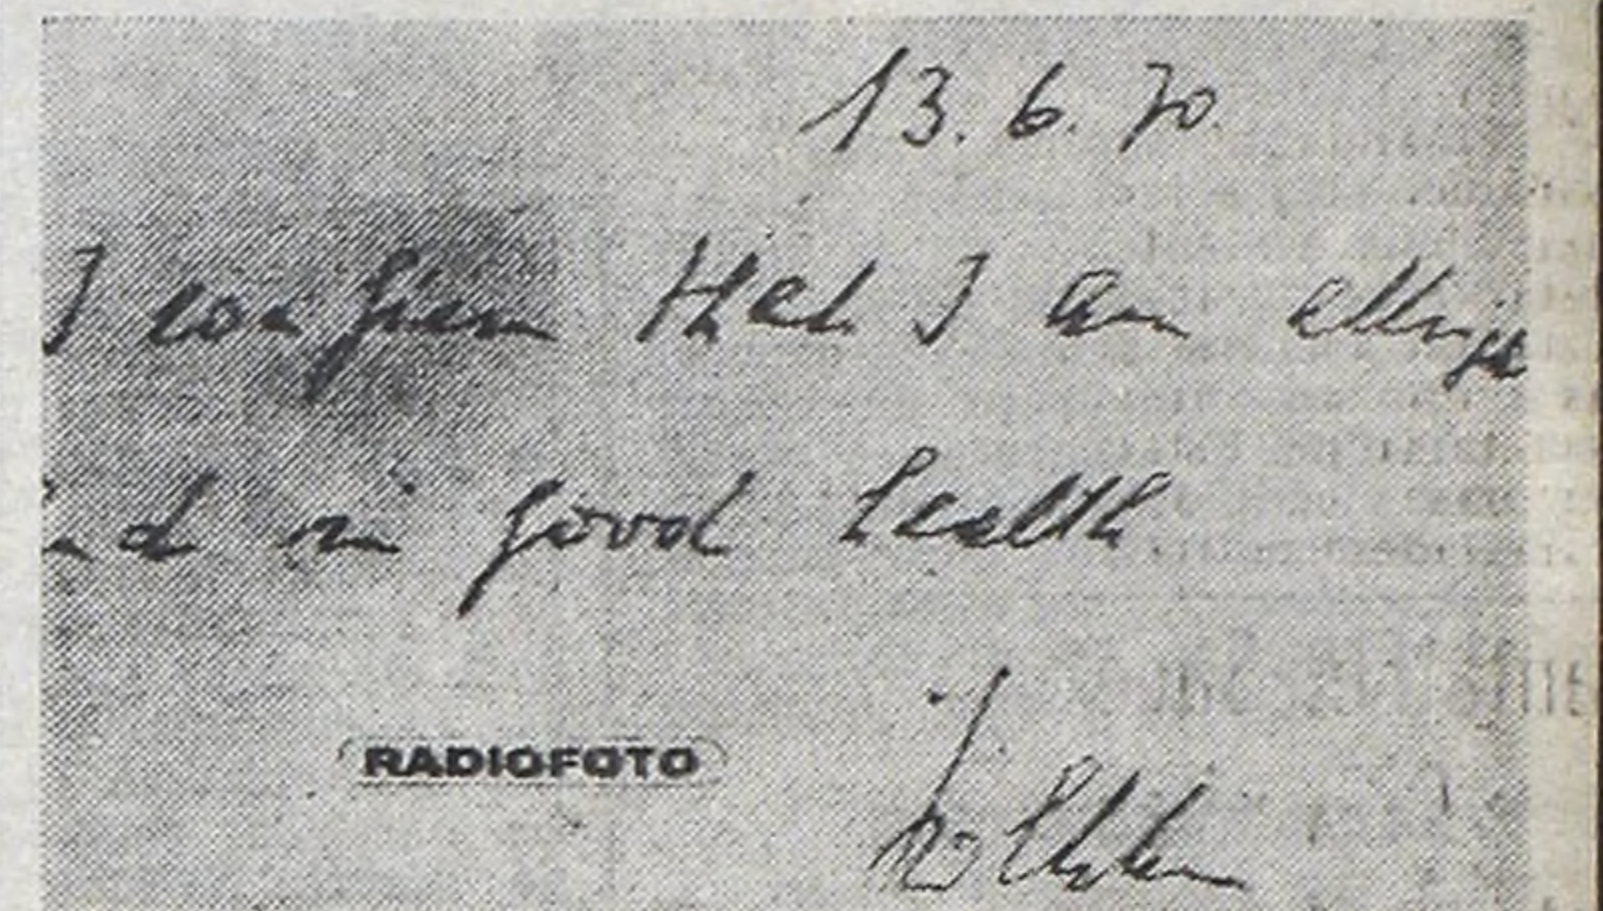 13.6.70.
I confirm that I am allrigt
and in good health
RADIOFOTO